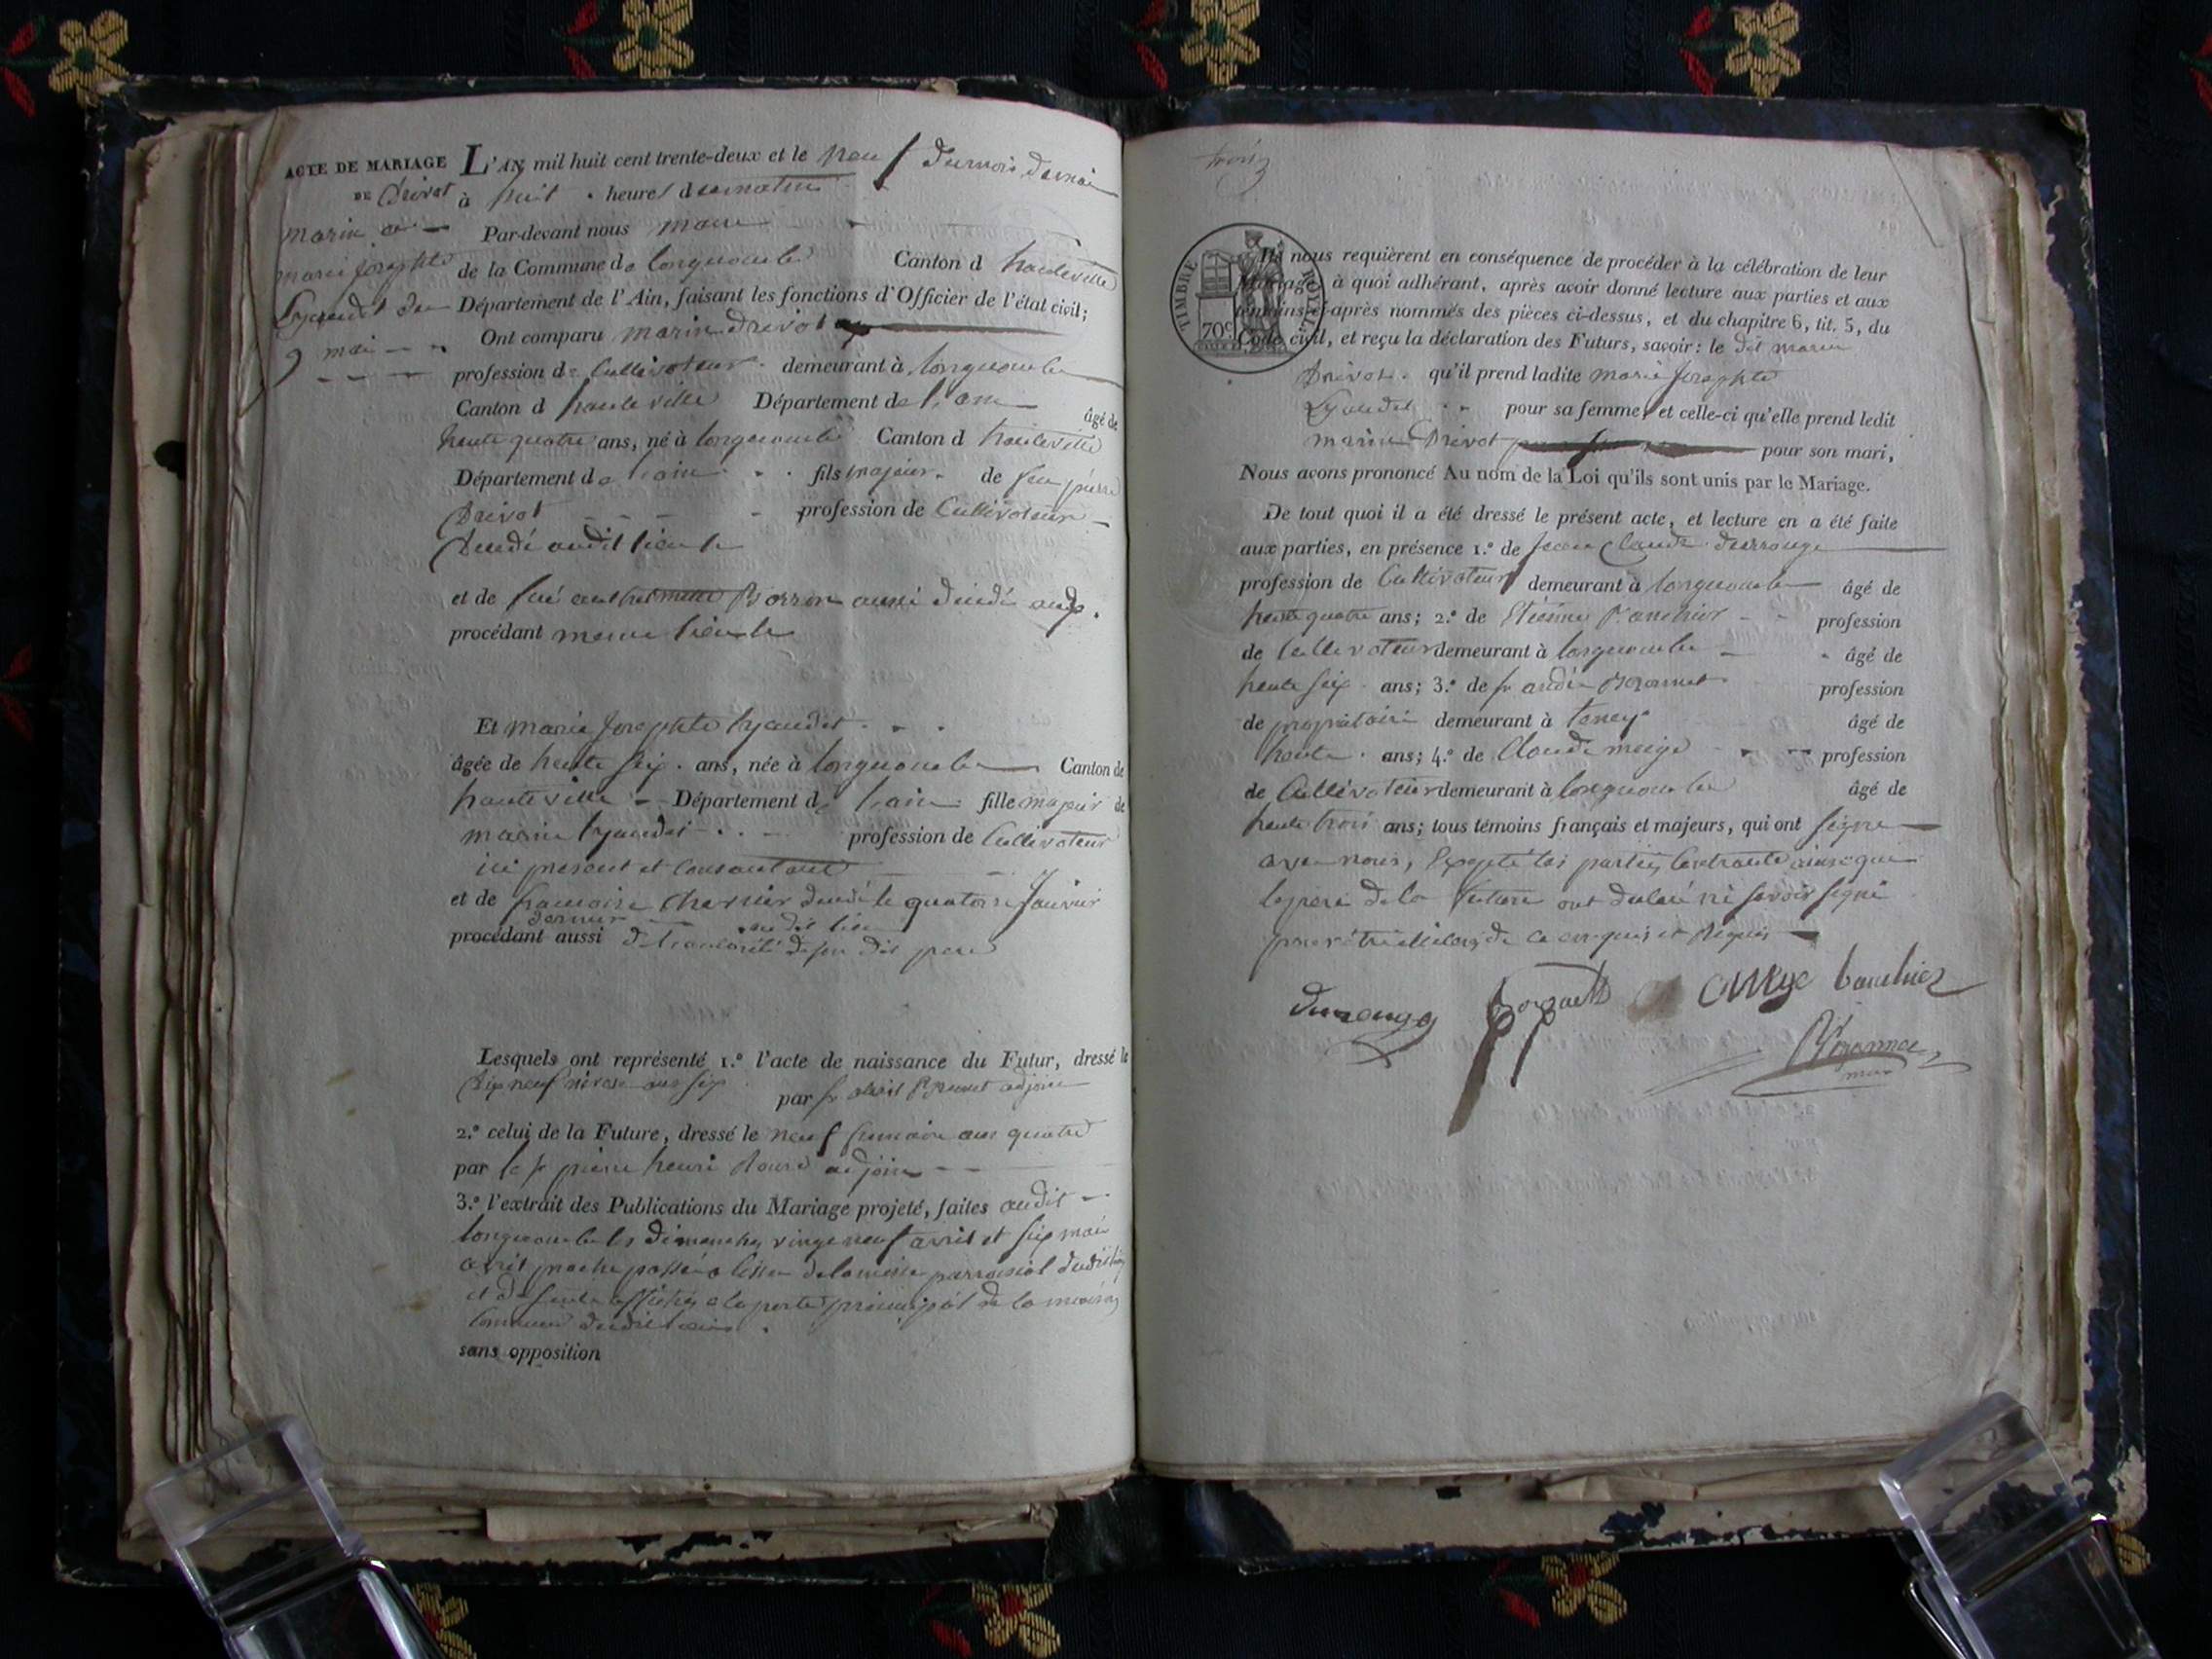 ACTE DE MARIAGE
DE Drivot
marin et
marie josephte
Lyaudet du
9 mai
L'AN mil huit cent trente-deux et le neuf du mois de mai
à huit heures du matin
Par-devant nous maire
de la Commune de longecombe Canton d hauteville
Département de l'Ain, faisant les fonctions d'Officier de l'état civil;
Ont comparu marin Drivot
profession de Cultivateur demeurant à longecombe
Canton d hauteville Département de l'ain âgé de
trente quatre ans, né à longecombe Canton d hauteville
Département de l'ain fils majeur de feu pierre
Drivot profession de Cultivateur
décédé audit lieu
et de feu Borron aussi décédé
procédant
Et marie josephte lyaudet
âgée de trente six ans, née à longecombe Canton de
hauteville Département de l'ain fille majeur de
marin lyaudet profession de Cultivateur
ici present et consentant
et de francoise décédé le quatorze janvier
dernier audit lieu
procédant aussi de l'autorité de son dit pere
Lesquels ont représenté 1.° l'acte de naissance du Futur, dressé le
dix neuf nivose an six par Brunet adjoint
2.° celui de la Future, dressé le neuf frimaire an quatre
par le sr pierre henri adjoint
3.° l'extrait des Publications du Mariage projeté, faites audit
longecombe les dimanches vingt neuf avril et six mai
proche passé a l'issue de la messe dudit lieu
et de suite affichés a la porte principal de la maison
commune dudit lieu
sans opposition
trois
TIMBRE ROYAL
70c
Ils nous requièrent en conséquence de procéder à la célébration de leur
Mariage, à quoi adhérant, après avoir donné lecture aux parties et aux
témoins ci-après nommés des pièces ci-dessus, et du chapitre 6, tit. 5, du
Code civil, et reçu la déclaration des Futurs, savoir: le dit marin
Drivot qu'il prend ladite marie josephte
Lyaudet pour sa femme, et celle-ci qu'elle prend ledit
marin Drivot pour son mari,
Nous avons prononcé Au nom de la Loi qu'ils sont unis par le Mariage.
De tout quoi il a été dressé le présent acte, et lecture en a été faite
aux parties, en présence 1.° de jean Claude
profession de Cultivateur demeurant à longecombe âgé de
trente quatre ans; 2.° de Etienne profession
de Cultivateur demeurant à longecombe âgé de
trente six ans; 3.° de sr andré profession
de propriétaire demeurant à tenay âgé de
trente ans; 4.° de Claude profession
de Cultivateur demeurant à longecombe âgé de
trente trois ans; tous témoins français et majeurs, qui ont signé
avec nous, excepté les parties contractante ainsi que
le pere de la future ont declaré ne savoir signé
pour de ce enquis et requis